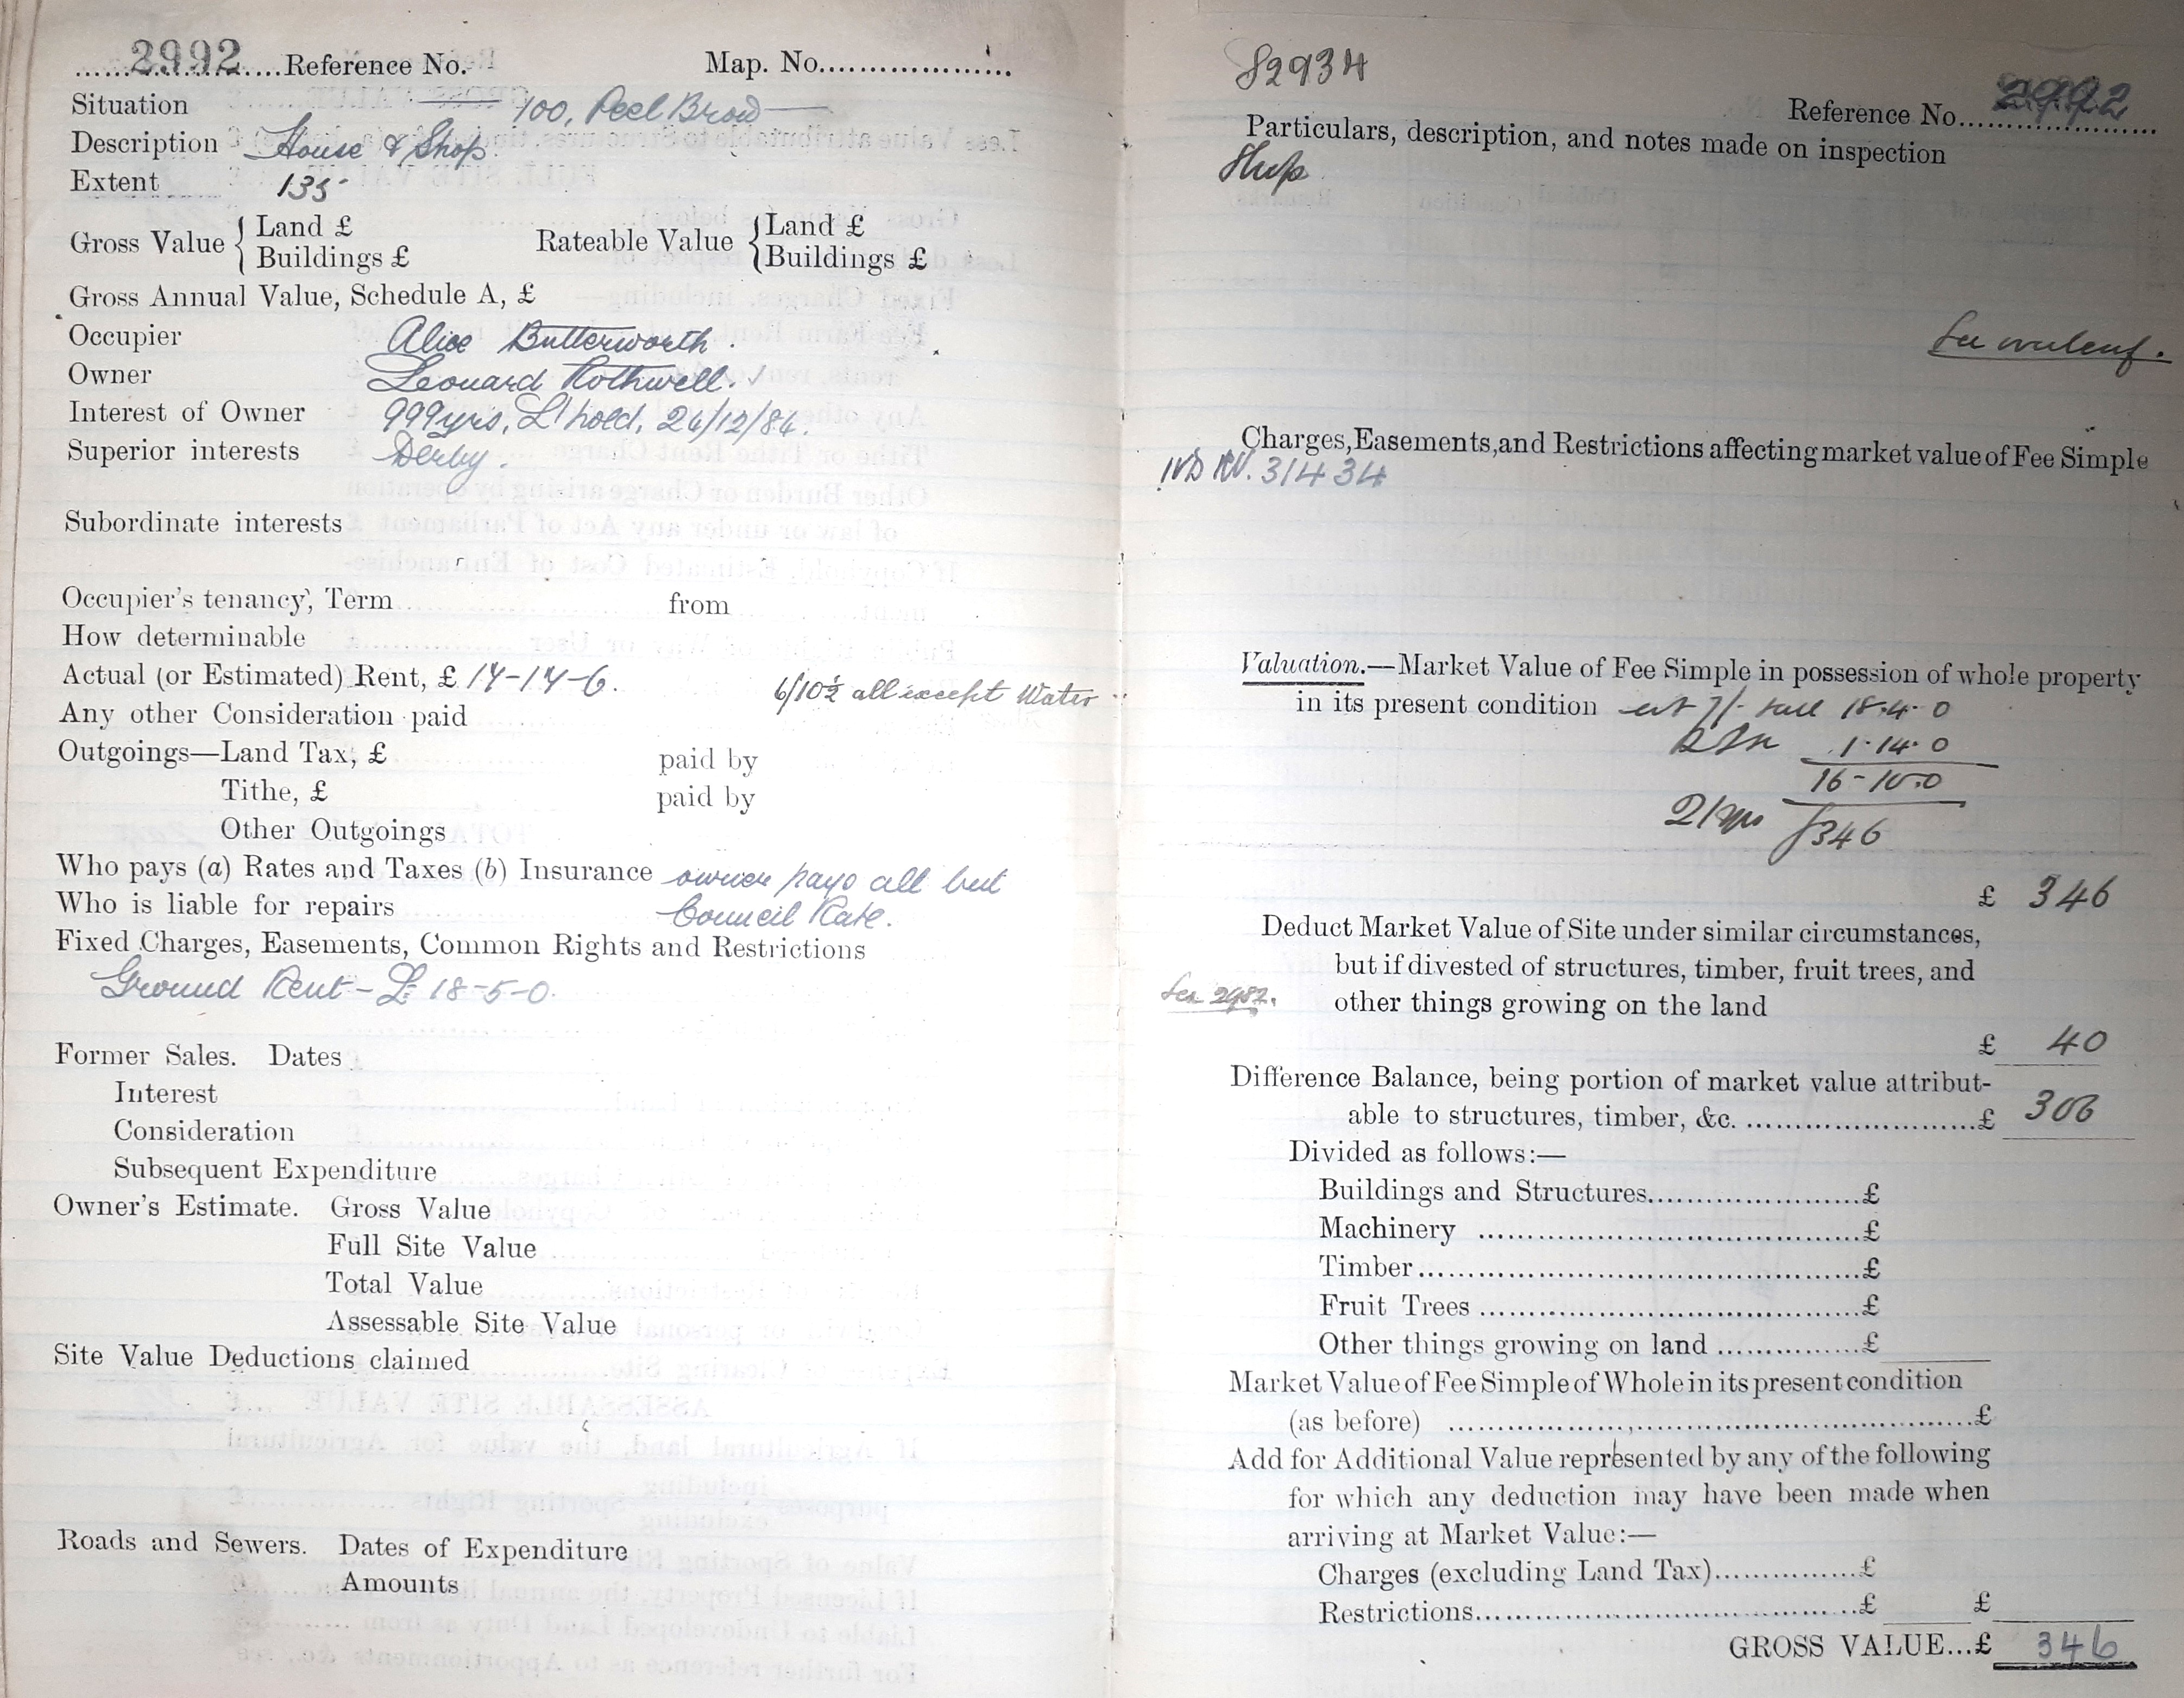 2992 Reference No. Map. No.
Situation 100, Peel Brow
Description House & Shop
Extent 135
Gross Value { Land £ Rateable Value { Land £
Buildings £ Buildings £
Gross Annual Value, Schedule A, £
Occupier Alice Butterworth.
Owner Leonard Rothwell. ✓
Interest of Owner 999yrs, L'hold, 24/12/84.
Superior interests Derby.
Subordinate interests
Occupier's tenancy, Term from
How determinable
Actual (or Estimated) Rent, £ 17-17-6. 6/10½ all except Water
Any other Consideration paid
Outgoings—Land Tax, £ paid by
Tithe, £ paid by
Other Outgoings
Who pays (a) Rates and Taxes (b) Insurance owner pays all but
Who is liable for repairs Council Rate.
Fixed Charges, Easements, Common Rights and Restrictions
Ground Rent - £18-5-0.
Former Sales. Dates
Interest
Consideration
Subsequent Expenditure
Owner's Estimate. Gross Value
Full Site Value
Total Value
Assessable Site Value
Site Value Deductions claimed
Roads and Sewers. Dates of Expenditure
Amounts
Reference No. 2992
Particulars, description, and notes made on inspection
Shop
See overleaf.
Charges, Easements, and Restrictions affecting market value of Fee Simple
Valuation.—Market Value of Fee Simple in possession of whole property
in its present condition 7/- 18.4.0
1.14.0
16-10.0
21 yrs £346
£ 346
Deduct Market Value of Site under similar circumstances,
but if divested of structures, timber, fruit trees, and
See 2987. other things growing on the land
£ 40
Difference Balance, being portion of market value attribut-
able to structures, timber, &c. £ 306
Divided as follows:—
Buildings and Structures £
Machinery £
Timber £
Fruit Trees £
Other things growing on land £
Market Value of Fee Simple of Whole in its present condition
(as before) £
Add for Additional Value represented by any of the following
for which any deduction may have been made when
arriving at Market Value:—
Charges (excluding Land Tax) £
Restrictions £ £
GROSS VALUE...£ 346